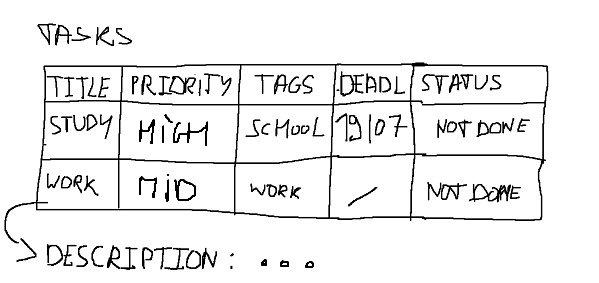 TASKS
TITLE PRIORITY TAGS DEADL STATUS
STUDY HIGH SCHOOL 19/07 NOT DONE
WORK MID WORK / NOT DONE
DESCRIPTION : ...